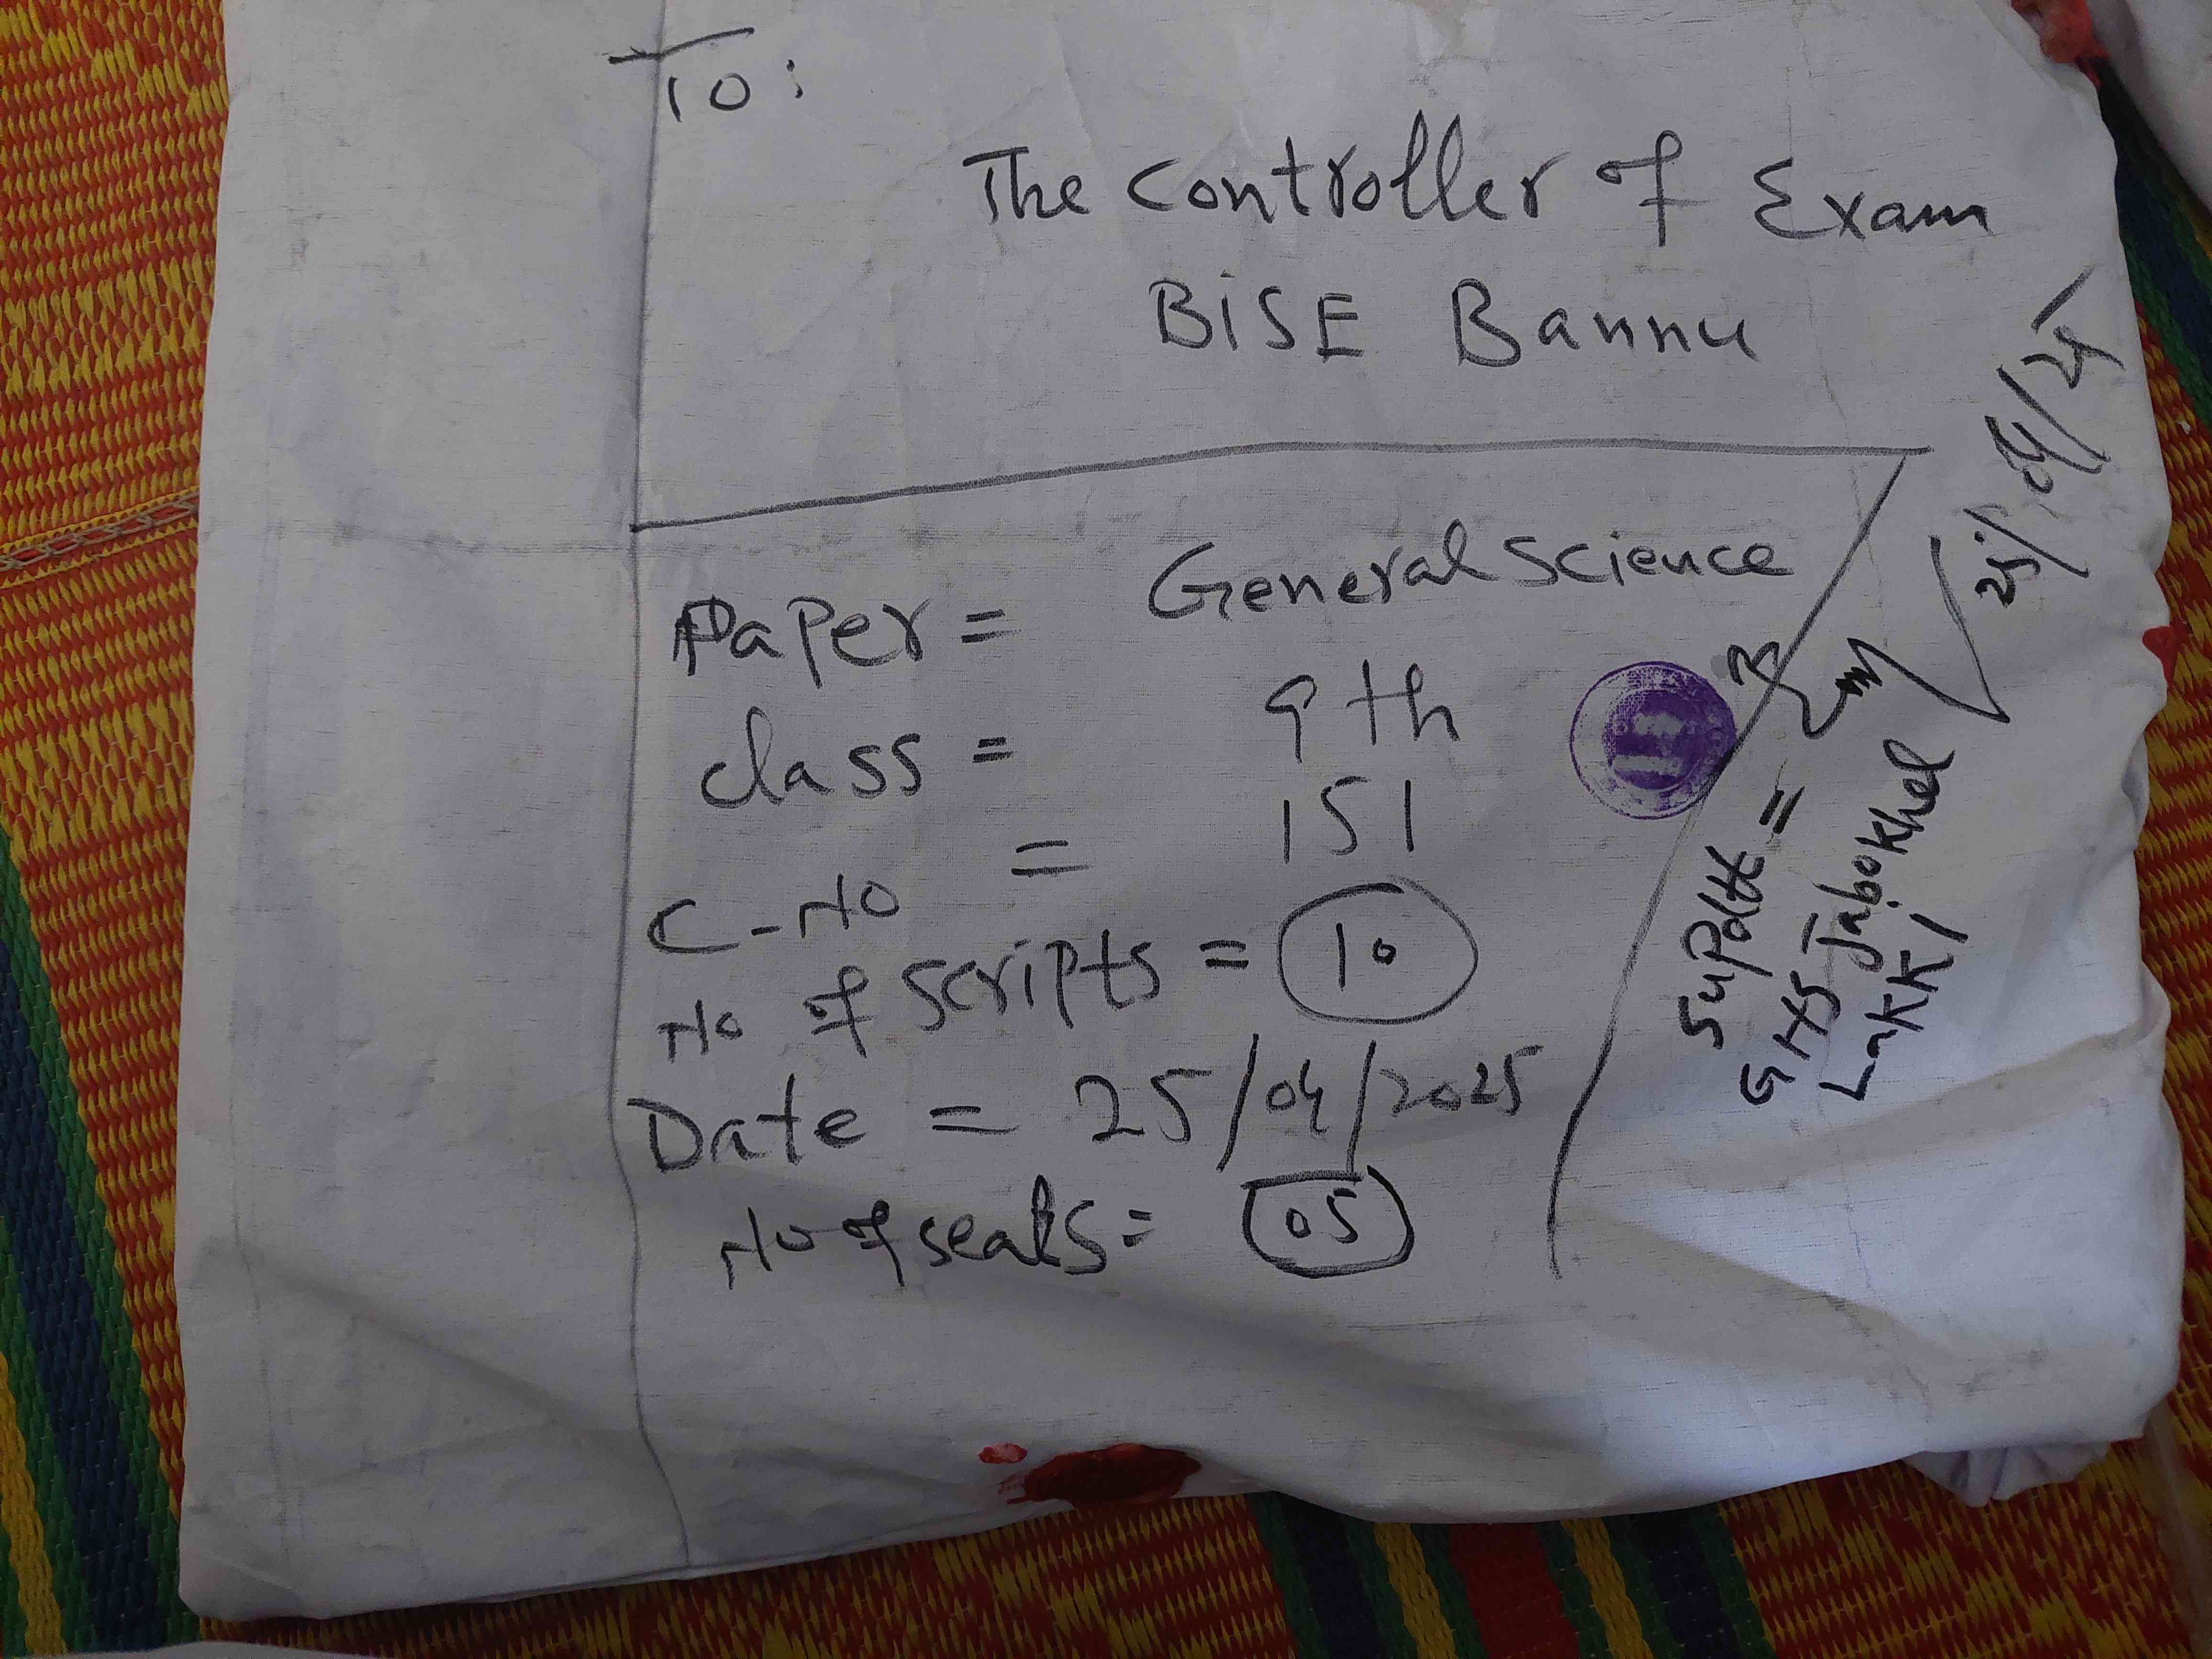 To:
The Controller of Exam
BiSE Bannu
Paper = General Science
class = 9th
C-No = 151
No of scripts = 10
Date = 25/04/2025
No of seals = 05
Supdtt =
GHS Jabokhel
Lakki
25/04/25